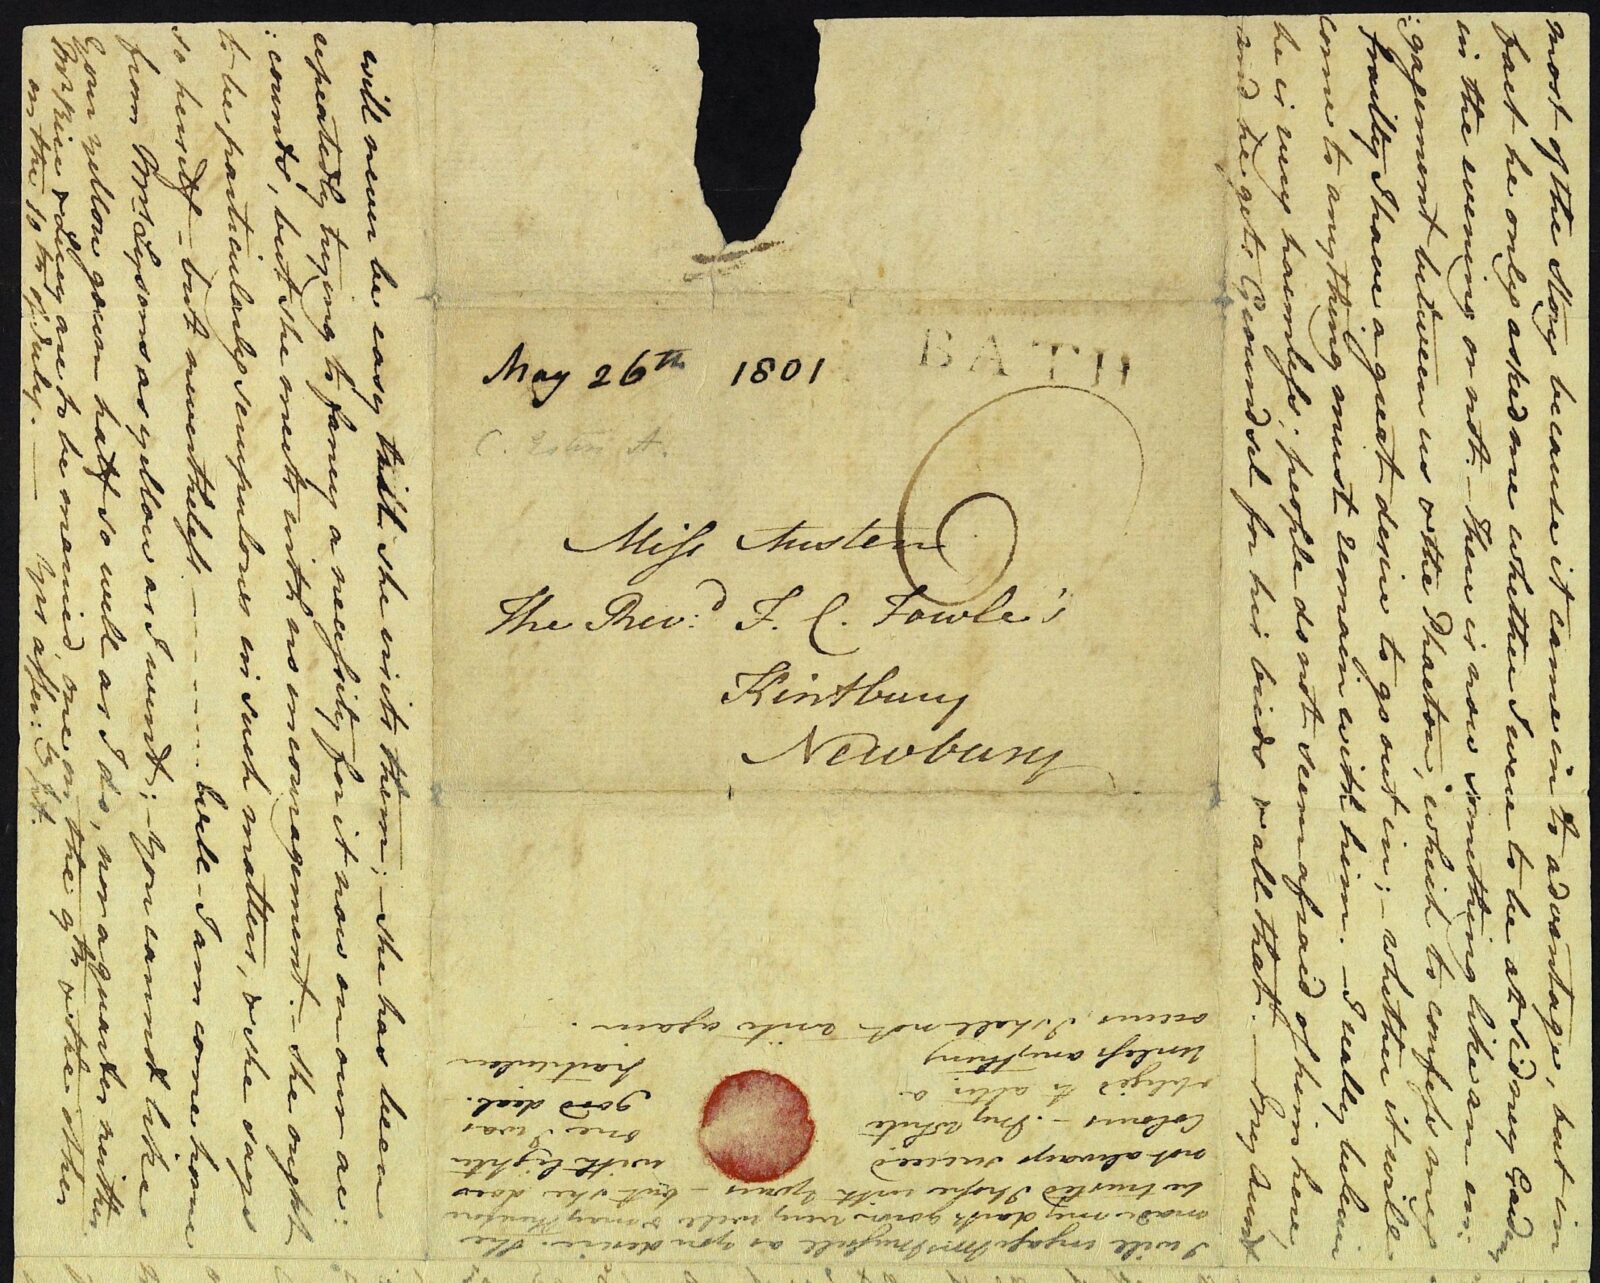 most of the Story because it came in to advantage, but in
fact he only asked me whether I were to be at Sidney Gardens
in the evening or not. - There is now something like an en:
:gagement between us & the Phaeton, which to confess my
frailty I have a great desire to go out in; - whether it will
come to anything must remain with him. - I really beleive
he is very harmless; people do not seem afraid of him here,
and he gets Groundsel for his birds & all that. - My Aunt
will never be easy till she visits them; - she has been
repeatedly trying to fancy a necessity for it now on our ac:
:counts, but she meets with no encouragement. - She ought
to be particularly scrupulous in such matters, & she says
so herself - but nevertheless - - - - - - Well - I am come home
from Mrs Lysons as yellow as I went; - You cannot like
your yellow gown half so well as I do, nor a quarter neither.
Mr Rice & Lucy are to be married, one on the 9th & the other
on the 10th of July. -
Yrs affec: ly J A.
May 26th 1801
BATH
Miss Austen
The Rev:d F. C. Fowle's
Kintbury
Newbury
I will engage Mrs Mussell as you desire. She
made my dark gown very well & may therefore
be trusted I hope with Yours - but she does
not always succeed with lighter
Colours. - My white one I was
obliged to alter a good deal. -
Unless anything particular
occurs, I shall not write again.